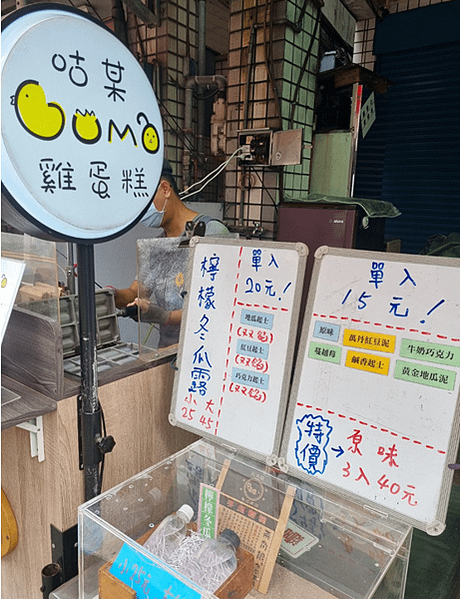 咕某
GUMO
雞蛋糕
檸檬冬瓜露
小 大
25 45
單入
20元!
地瓜起士
(双餡)
紅豆起士
(双餡)
巧克力起士
(双餡)
單入
15元!
原味
萬丹紅豆泥
牛奶巧克力
蔓越莓
鹹香起士
黃金地瓜泥
特價
→
原味
3入40元